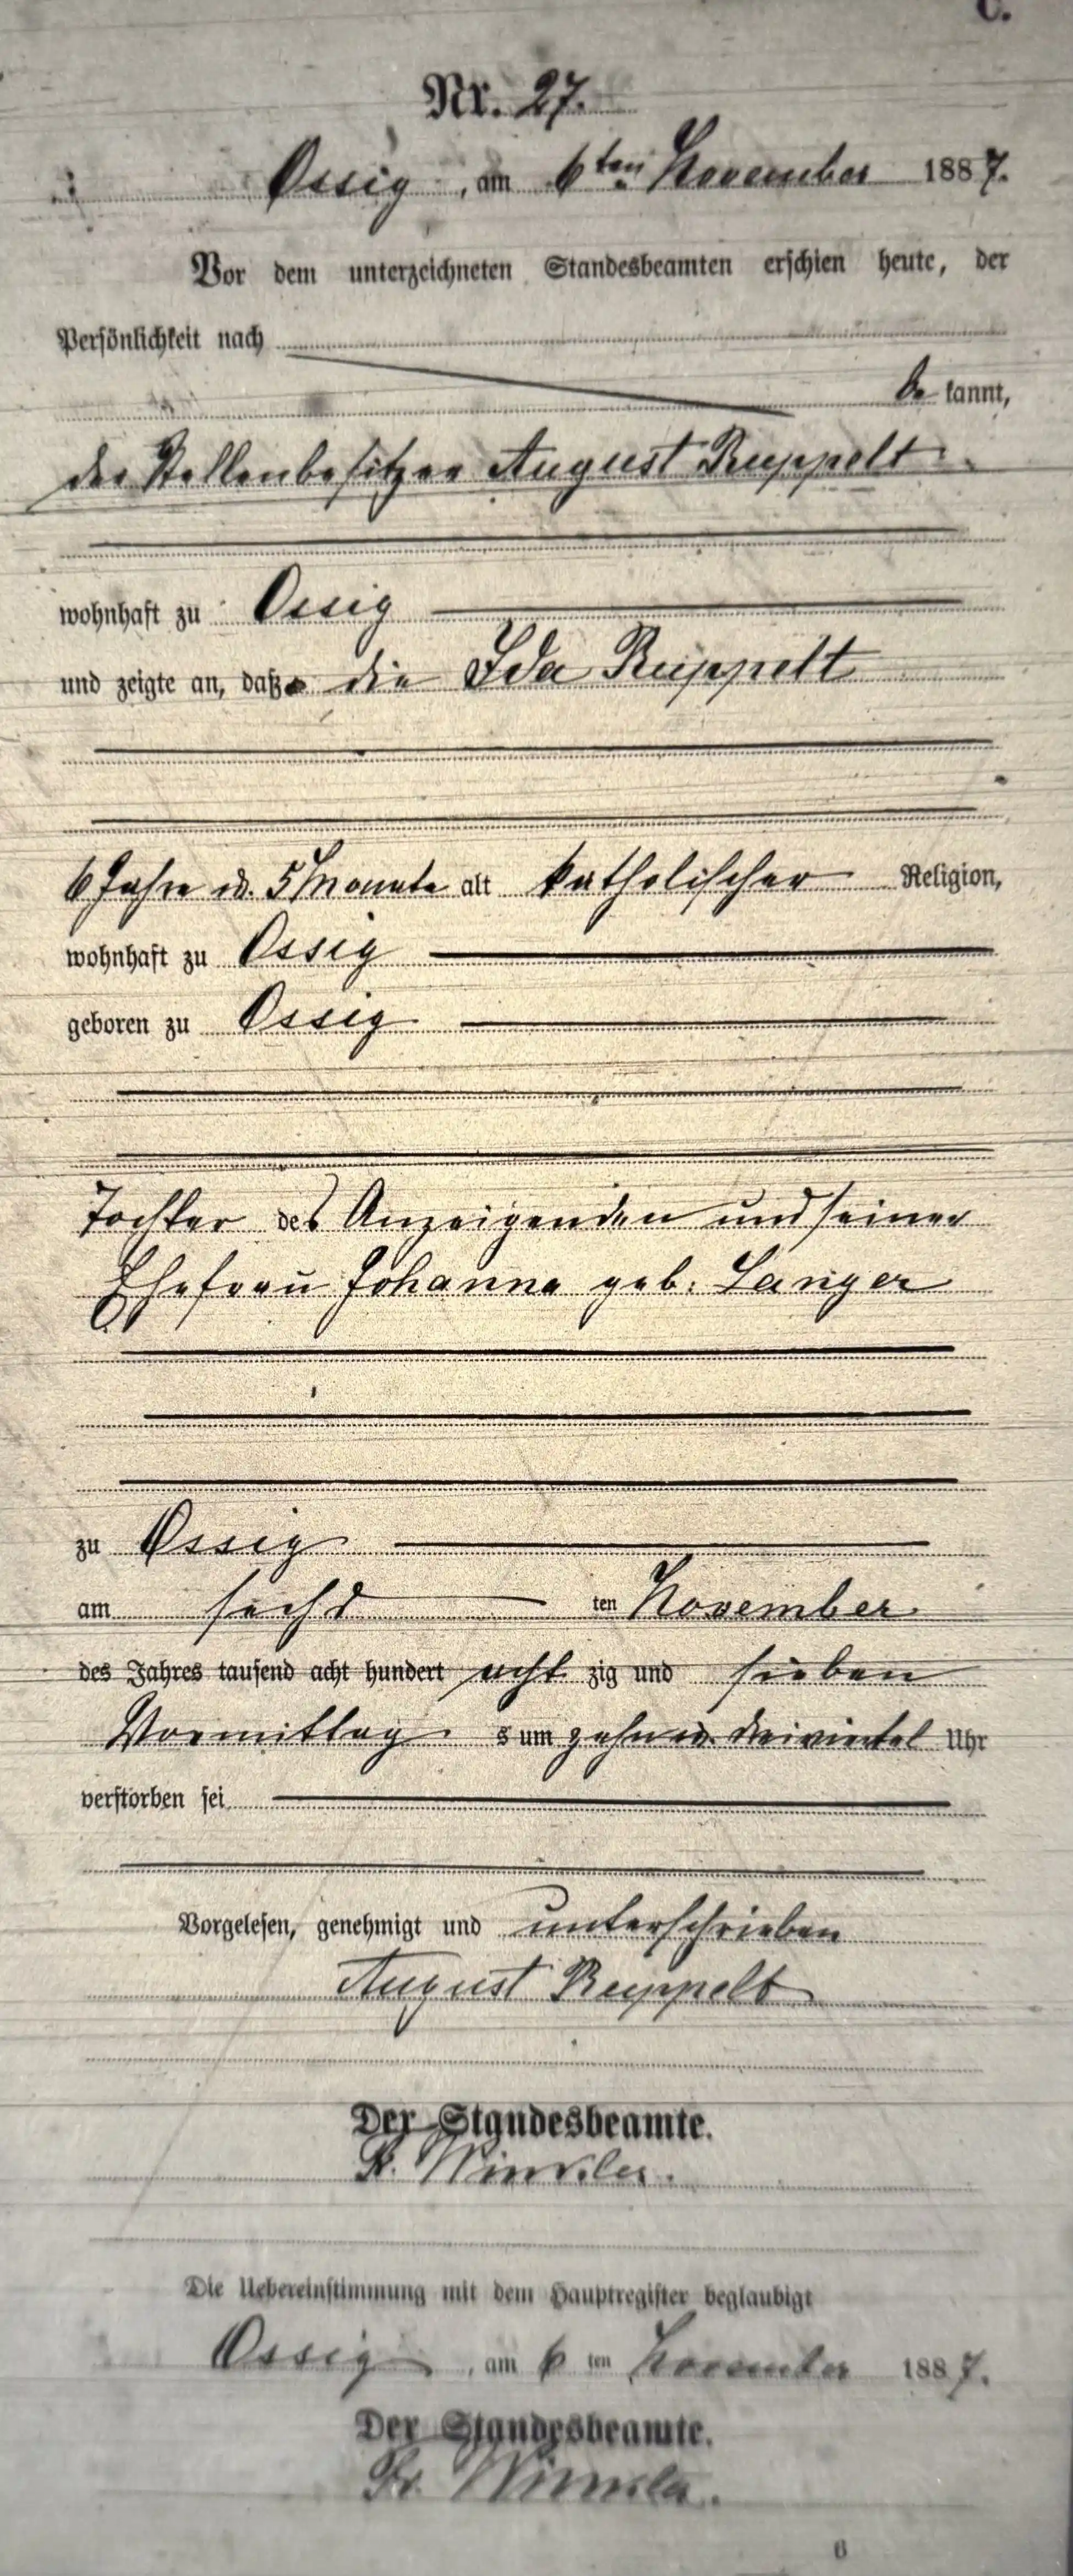 C.
Nr. 27.
Ossig, am 6ten November 1887.
Vor dem unterzeichneten Standesbeamten erschien heute, der
Persönlichkeit nach
be kannt,
der Stellenbesitzer August Ruppelt
wohnhaft zu Ossig
und zeigte an, daß die Ida Ruppelt
6 Jahre u. 5 Monate alt katholischer Religion,
wohnhaft zu Ossig
geboren zu Ossig
Tochter des Anzeigenden und seiner
Ehefrau Johanna geb. Langer
zu Ossig
am sechs ten November
des Jahres tausend acht hundert acht zig und sieben
Vormittag s um zehn u. dreiviertel Uhr
verstorben sei
Vorgelesen, genehmigt und unterschrieben
August Ruppelt
Der Standesbeamte.
Winkler.
Die Uebereinstimmung mit dem Hauptregister beglaubigt
Ossig, am 6 ten November 1887.
Der Standesbeamte.
Fr. Winkler.